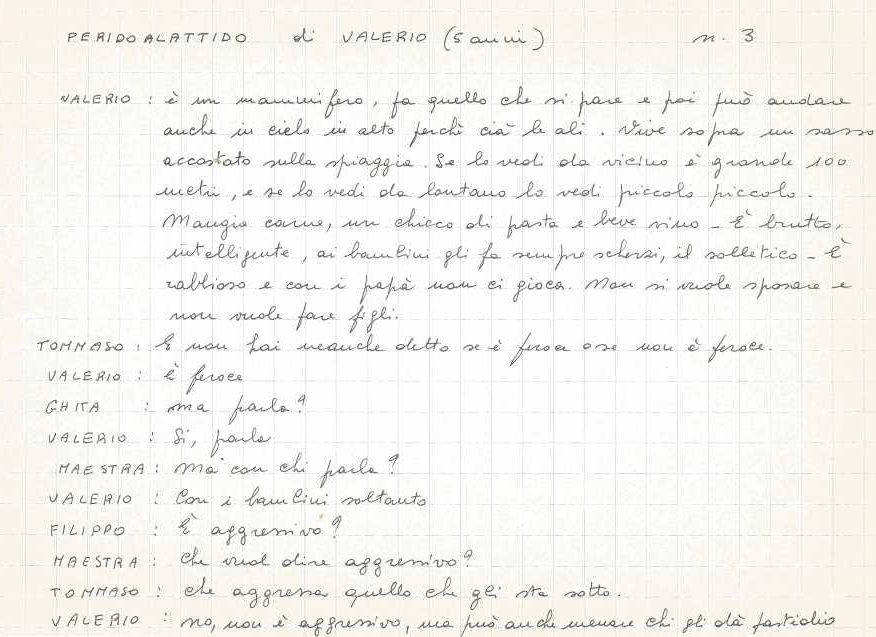 PERIDOALATTIDO di VALERIO (5 anni) n. 3
VALERIO : è un mammifero, fa quello che si pare e poi può andare
anche in cielo in alto perchè cià le ali. Vive sopra un sasso
accostato sulla spiaggia. Se lo vedi da vicino è grande 100
metri, e se lo vedi da lontano lo vedi piccolo piccolo.
Mangia carne, un chicco di pasta e beve vino - È brutto,
intelligente, ai bambini gli fa sempre scherzi, il solletico - È
rabbioso e con i papà non ci gioca. Non si vuole sposare e
non vuole fare figli.
TOMMASO : E non hai neanche detto se è feroce o se non è feroce.
VALERIO : è feroce
GHITA : ma parla?
VALERIO : Si, parla
MAESTRA : Ma con chi parla?
VALERIO : Con i bambini soltanto
FILIPPO : È aggressivo?
MAESTRA : Che vuol dire aggressivo?
TOMMASO : che aggressa quello che gli sta sotto.
VALERIO : no, non è aggressivo, ma può anche menare chi gli dà fastidio